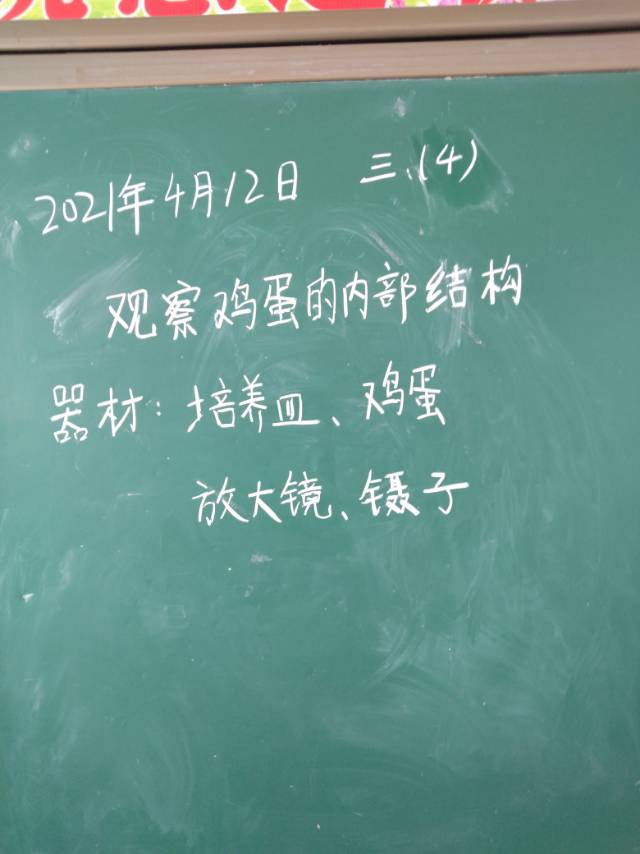 2021年4月12日 三、(4)
观察鸡蛋的内部结构
器材：培养皿、鸡蛋
放大镜、镊子